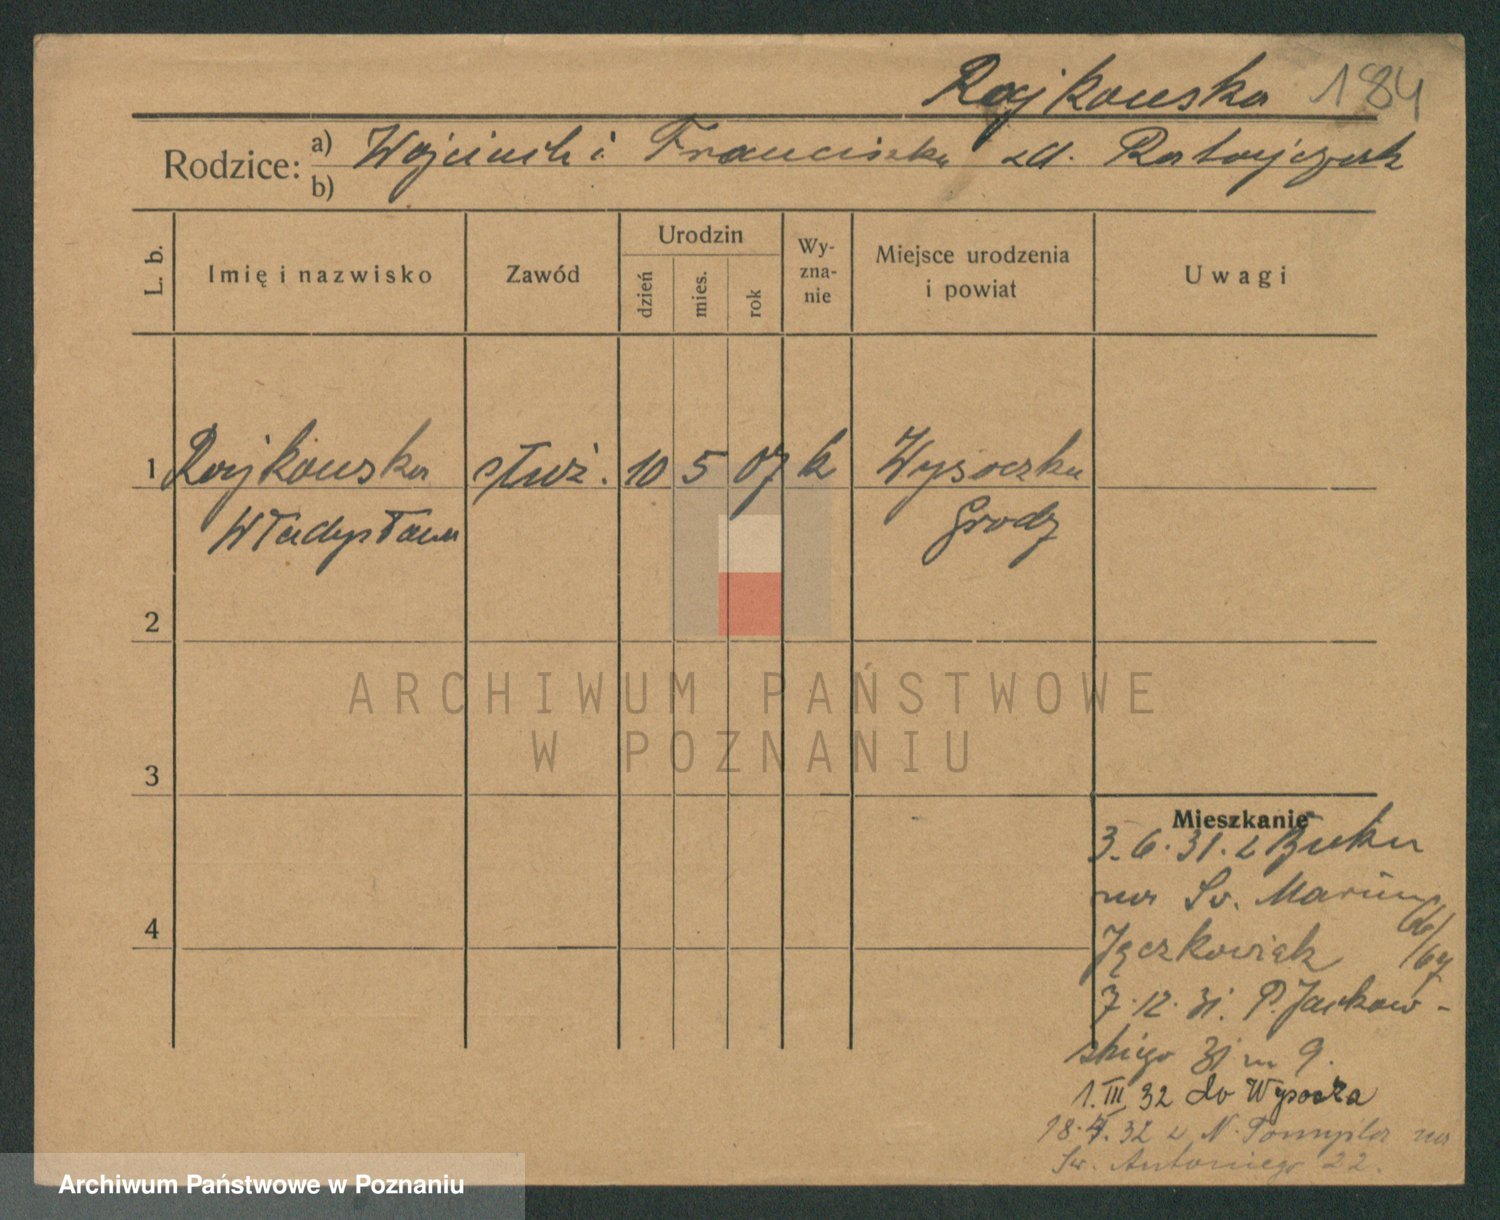 Rajkowska 184
Rodzice: a) Wojciech i Franciszka zd. Ratajczak
b)
L. b.
Imię i nazwisko
Zawód
Urodzin
dzień
mies.
rok
Wy-
zna-
nie
Miejsce urodzenia
i powiat
Uwagi
1 Rajkowska służ. 10 5 07 k Wysoczka
Władysława Grodz
2
ARCHIWUM PAŃSTWOWE
W POZNANIU
3
Mieszkanie
3.6.31. z Buku
na Św. Marcin 66/67
Jęczkowiak
7.12.31. P. Jackow-
skiego 31 m 9.
1.III 32 do Wysocka
18. 32 z N. Tomyśla na
Św. Antoniego 22.
4
Archiwum Państwowe w Poznaniu